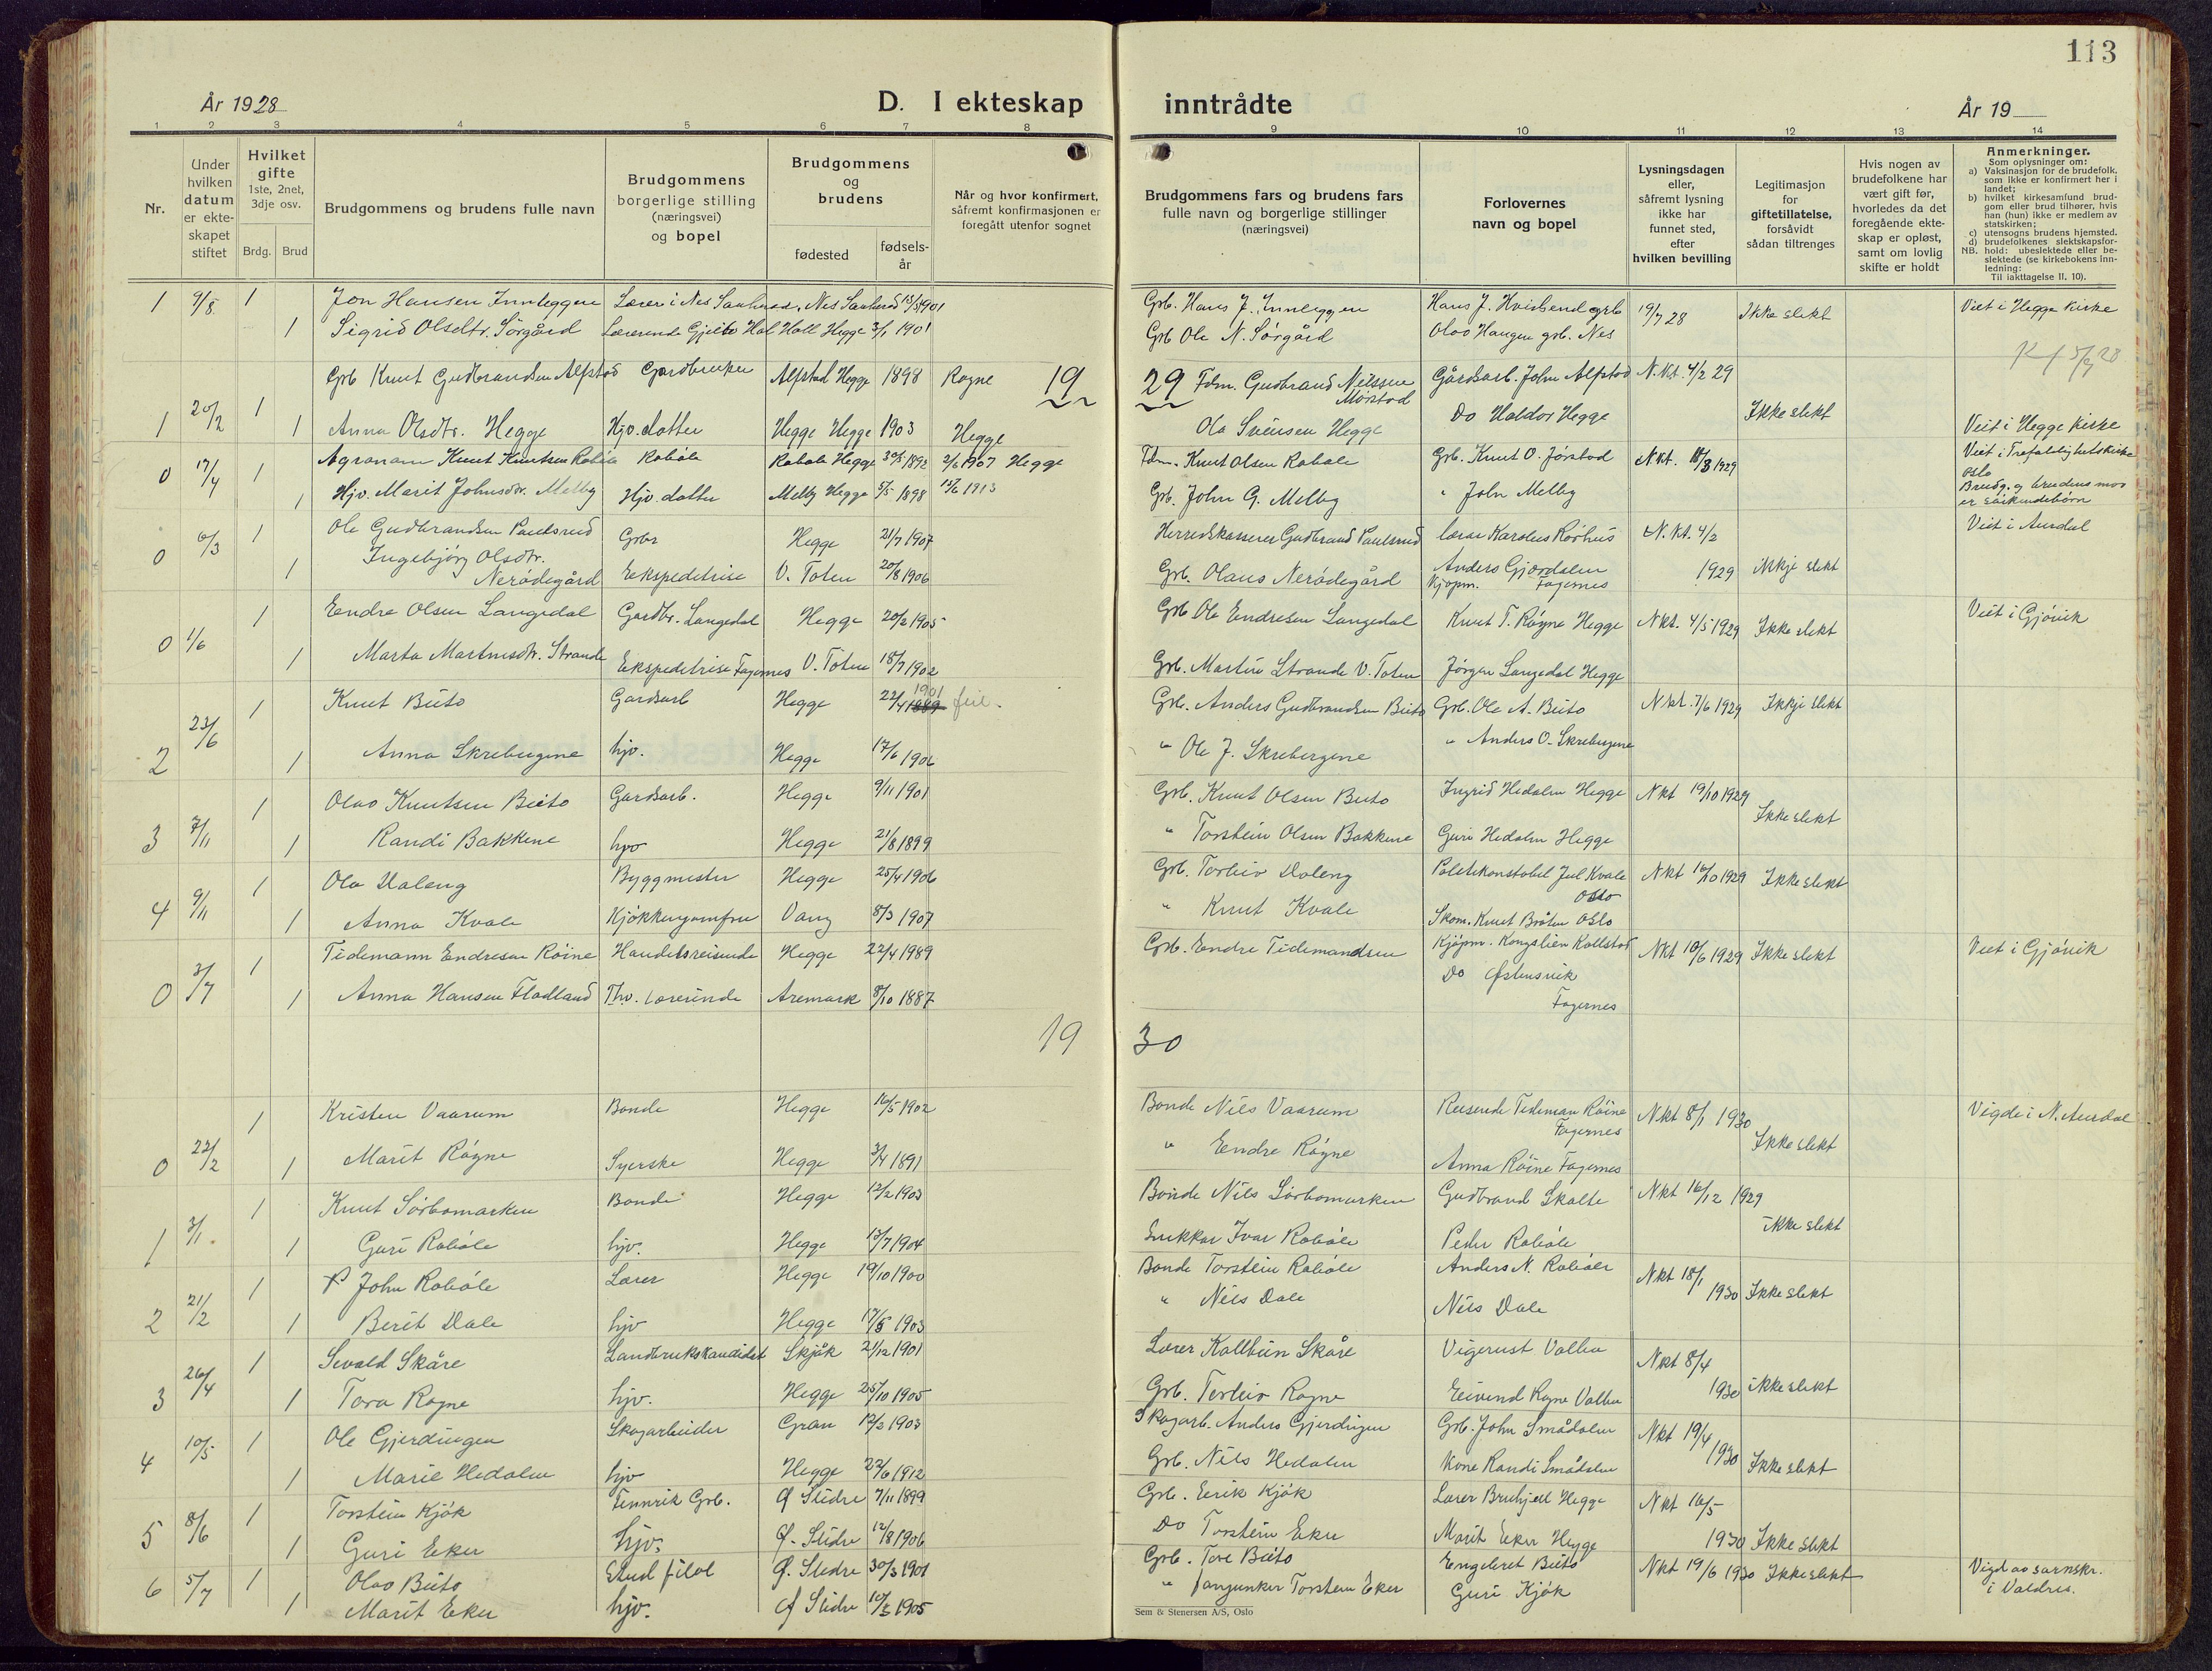 113
År 1928
D. I ekteskap inntrådte
År 19
1 2 3 4 5 6 7 8 9 10 11 12 13 14
Nr.
Under hvilken datum er ekteskapet stiftet
Hvilket gifte
1ste, 2net, 3dje osv.
Brdg. Brud
Brudgommens og brudens fulle navn
Brudgommens borgerlige stilling (næringsvei) og bopel
Brudgommens og brudens
fødested
fødselsår
Når og hvor konfirmert, såfremt konfirmasjonen er foregått utenfor sognet
Brudgommens fars og brudens fars fulle navn og borgerlige stillinger (næringsvei)
Forlovernes navn og bopel
Lysningsdagen eller, såfremt lysning ikke har funnet sted, efter hvilken bevilling
Legitimasjon for giftetillatelse, forsåvidt sådan tiltrenges
Hvis nogen av brudefolkene har vært gift før, hvorledes da det foregående ekteskap er opløst, samt om lovlig skifte er holdt
Anmerkninger.
Som oplysninger om:
a) Vaksinasjon for de brudefolk, som ikke er konfirmert her i landet;
b) hvilket kirkesamfund brudgom eller brud tilhører, hvis han (hun) ikke er medlem av statskirken;
c) utensogns brudens hjemsted.
d) brudefolkenes slektskapsforhold: ubeslektede eller beslektede (se kirkebokens innledning:
NB. Til iakttagelse II. 10).
1 9/8 1 Jon Hansen Innleggen Lærer i Nes Sauherad, Nes Sauherad 1901 Grb. Hans J. Innleggen Hans J. grb 19/7 28 Ikke slekt Viet i Hegge Kirke
1 Sigrid Olsdtr. Sørgård Lærerinde Hegge 3/1 1901 Grb Ole N. Sørgård Olav Haugen grb. Nes
19 29
Grb Knut Gudbrandsen Alfstad Gardbruker Alfstad Hegge 1898 Rogne Fdm. Gudbrand Nilssen Mørstad Gårdarb. John Alfstad N.Kt. 4/2 29
1 20/2 1 1 Anna Olsdtr. Hegge Hjv. datter Hegge Hegge 1903 Hegge Ola Sveinsen Hegge Do Haldor Hegge Ikke slekt Viet i Hegge kirke
0 17/4 1 Agronom Knut Knutsen Robøle Robøle Robøle Hegge 1892 2/6 1907 Hegge Fdm. Knut Olsen Robøle Grb. Knut O. Jørstad N.Kt. 18/3 1929 Viet i Trefoldighetskirke Oslo
1 Hjv. Marit Johnsdtr. Melby Hjv. datter Melby Hegge 5/5 1898 15/6 1913 Grb. John G. Melby " John Melby Brudg. og brudens mor er søskendebørn
0 6/3 1 Ole Gudbrandsen Paulsrud Grbr Hegge 21/7 1907 Herredskasserer Gudbrand Paulsrud lærer Karolus Rødhus N.Kt. 4/2 Viet i Aurdal
1 Ingebjørg Olsdtr. Nerødegård Ekspeditrise V. Toten 20/8 1906 Grb. Olaus Nerødegård Anders Gjordalen Kjøpm. Fagernes 1929 ikkje slekt
0 1/6 1 Eendre Olsen Langedal Gardbr. Langedal Hegge 20/2 1905 Grb Ole Endresen Langedal Knut T. Røgne Hegge Nkt. 4/5 1929 Ikke slekt Viet i Gjøvik
1 Marta Martinsdtr. Strande Ekspeditrise Fagernes V. Toten 18/7 1902 Grb. Martin Strande V. Toten Jørgen Langedal Hegge
2 23/6 1 Knut Beito Gardsarb Hegge 22/4 1889 1901 feil. Grb. Anders Gudbrandsen Beito Grb. Ole A. Beito Nkt. 7/6 1929 Ikkje slekt
1 Anna Skrebergene hjv. Hegge 17/6 1906 " Ole J. Skrebergene " Anders O. Skrebergene
3 7/11 1 Olav Knutsen Beito Gardsarb. Hegge 9/11 1901 Grb. Knut Olsen Beito Ingrid Hedalen Hegge Nkt 19/10 1929 Ikke slekt
1 Randi Bakkene hjv Hegge 21/8 1899 " Torstein Olsen Bakkene Guri Hedalen Hegge
4 9/11 1 Ola Haleng Byggmester Hegge 25/4 1906 Grb. Torleiv Haleng Politikonstabel Jul Kvale Oslo Nkt 16/10 1929 Ikke slekt
1 Anna Kvale Kjøkkenjomfru Vang 8/3 1907 " Knut Kvale Skom. Knut Bråten Oslo
0 3/7 1 Tidemann Endresen Røine Handelsreisende Hegge 22/4 1989 Grb. Endre Tidemandsen Kjøpm. Kongslien Kollstad Nkt 10/6 1929 Ikke slekt Viet i Gjøvik
1 Anna Hansen Flodland Thv. lærerinde Aremark 8/10 1887 Do Østensvik Fagernes
19 30
0 22/2 1 Kristen Vaarum Bonde Hegge 16/5 1902 Bonde Nils Vaarum Reisende Tideman Røine Fagernes Nkt 8/1 1930 Ikke slekt Vigde i N. Aurdal
1 Marit Røgne Syerske Hegge 3/4 1891 " Eendre Røgne Anna Røine Fagernes
1 3/1. 1 Knut Sørbomarken Bonde Hegge 12/2 1903 Bonde Nils Sørbomarken Gudbrand Skalte Nkt 16/12 1929 ikke slekt
1 Guri Robøle hjv. Hegge 13/7 1904 Ivar Robøle Peder Robøle
2 21/2 1 John Robøle Lærer Hegge 19/10 1900 Bonde Torstein Robøle Anders N. Robøle Nkt 18/1 1930 Ikke slekt
1 Berit Dale hjv Hegge 17/5 1903 " Nils Dale Nils Dale
3 26/4 1 Sevald Skåre Landbrukskandidat Skjåk 21/12 1901 Lærer Kolbein Skåre Vigerust Volbu Nkt 8/4 1930 ikke slekt
1 Tora Rogne hjv. Hegge 25/10 1905 Grb. Torleiv Rogne Eivind Rogne Volbu
4 10/5 1 Ole Gjerdingen Skogarbeider Gran 12/3 1903 Skogarb. Anders Gjerdingen Grb. John Smådalen Nkt 19/4 1930 Ikke slekt
1 Marie Hedalen hjv Hegge 22/6 1912 Grb. Nils Hedalen Kone Randi Smådalen
5 8/6 1 Torstein Kjøk Grb. Ø Slidre 7/11 1899 Grb. Eerik Kjøk Lærer Bruhjell Hegge Nkt 16/5 1930 Ikke slekt
1 Guri Eker hjv. Ø. Slidre 12/8 1906 Do Torstein Eker Marit Eker Hegge
6 5/7 1 Olav Beito Stud filol Ø. Slidre 30/3 1901 Grb. Tore Beito Engebret Beito Nkt 19/6 1930 Ikke slekt Vigd av sornskr. i Valdres.
1 Marit Eker hjv. Ø Slidre 10/3 1905 " fanjunker Torstein Eker Guri Kjøk
Sem & Stenersen A/S, Oslo